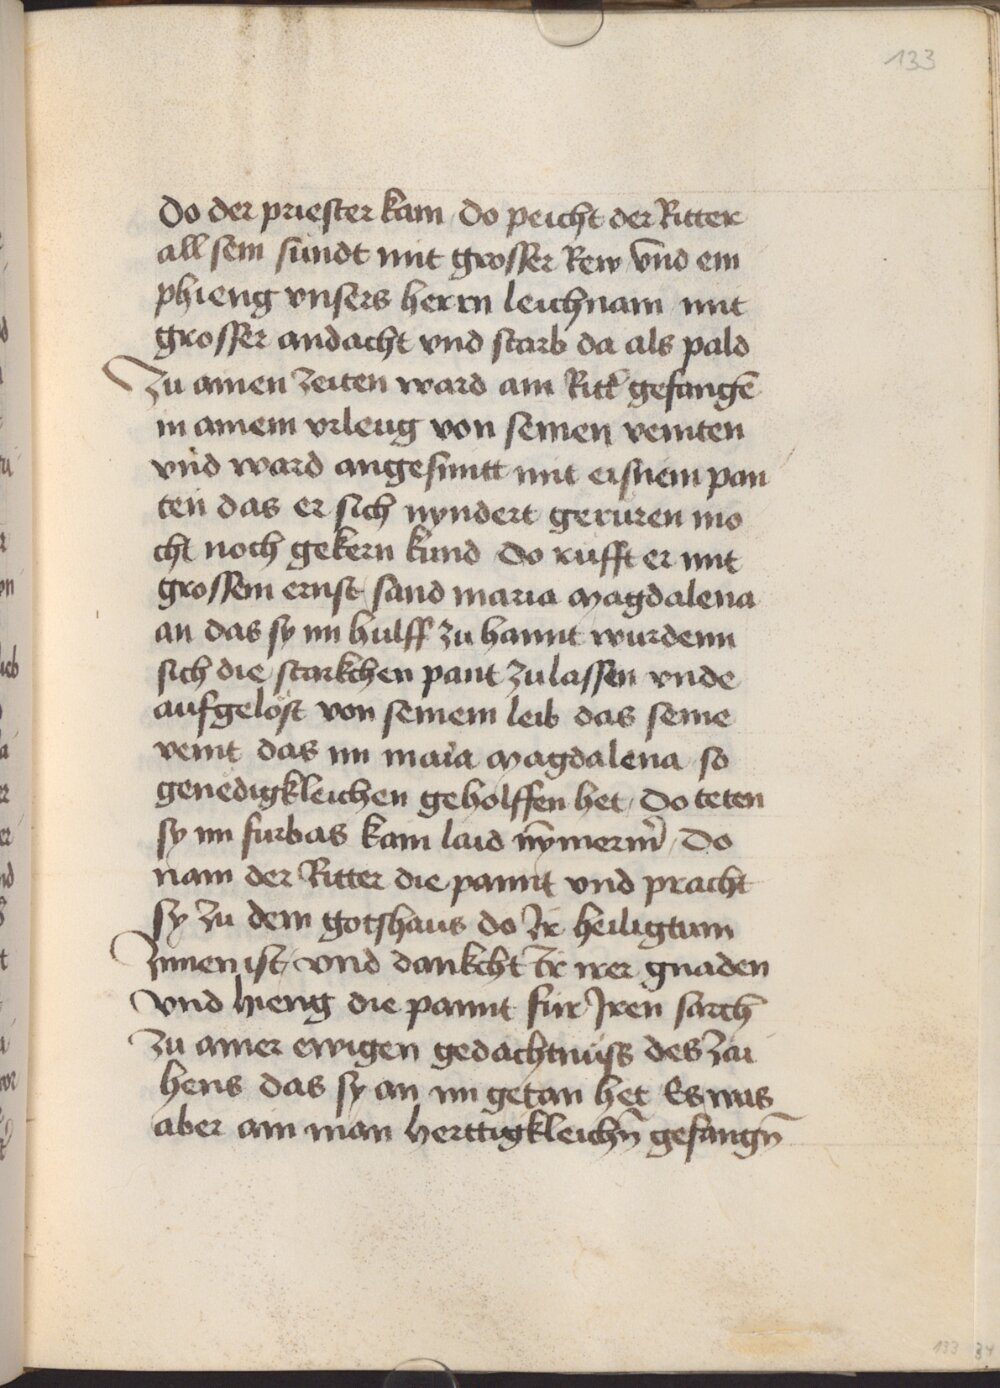 133
Do der priester kam Do peicht der Ritter
all sein sündt mit grosser Rew vnd em
phieng vnsers herrn leichnam mit
grosser andacht vnd starb da als pald
Zu ainen Zeiten ward ain Ritt̄ gefangē
in ainem vrleug von seinen veinten
vnd ward angesmitt mit eisnem pan
ten das er sich nyndert geruren mo
cht noch gekern kund Do rufft er mit
grossem ernst sand maria magdalena
an das sy im hulff zu hannt wurdenn
sich die starkchen pant zulassen vnde
aufgelöst von seinem leib das seine
veint das im maria magdalena so
genedigkleichen geholffen het Do teten
sy im furbas kain laid nȳmermer Do
nam der Ritter die pannt vnd pracht
sy zu dem gotshaus do Ir heiligtum
Innen ist vnd dankcht Ir irer gnaden
vnd hieng die pannt für Iren sarch
zu ainer ewigen gedachtnüss des Zai
hens das sy an im getan het Es was
aber ain man herttigkleichn̄ gefangn̄
133 34